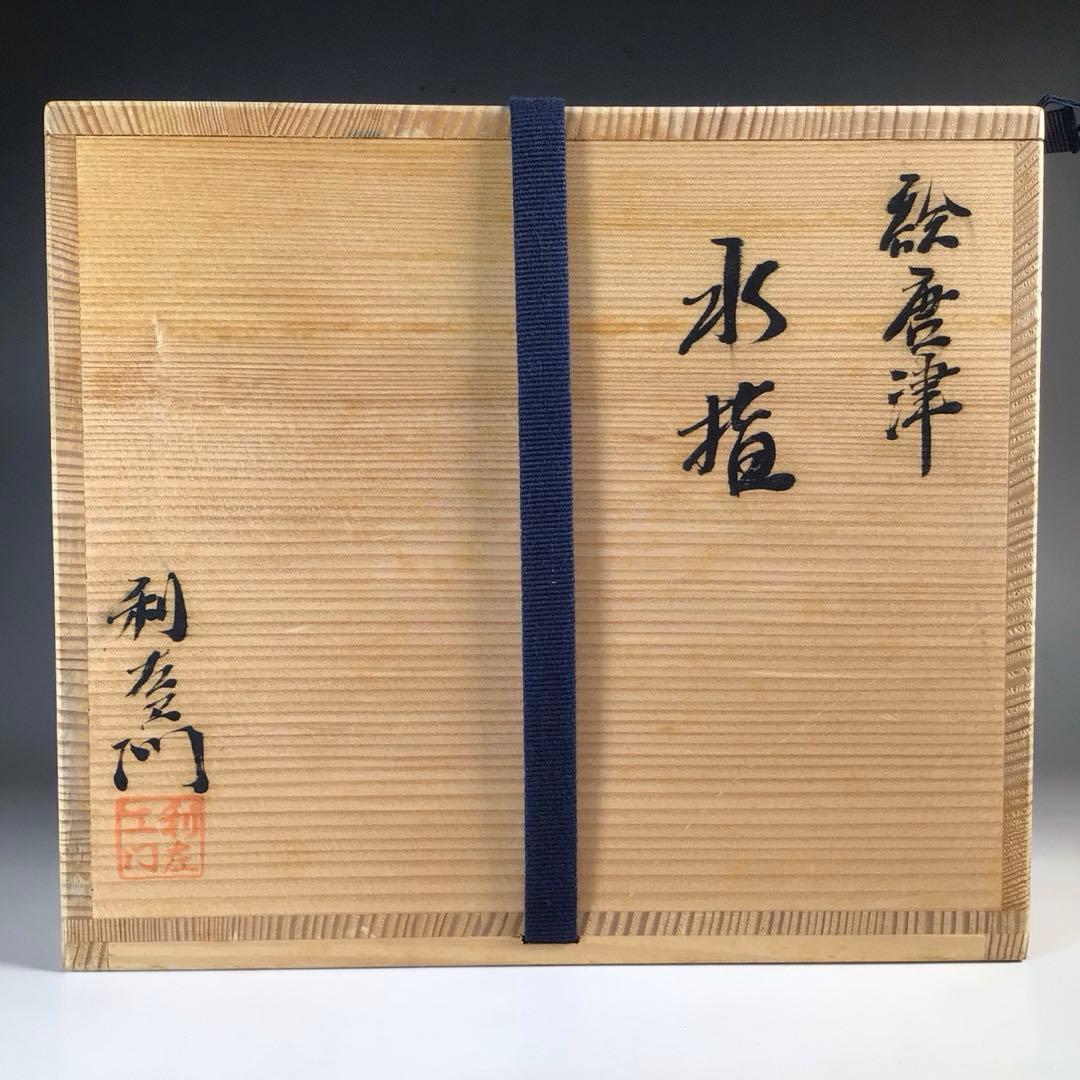 絵唐津
水指
利左エ門
利左エ門